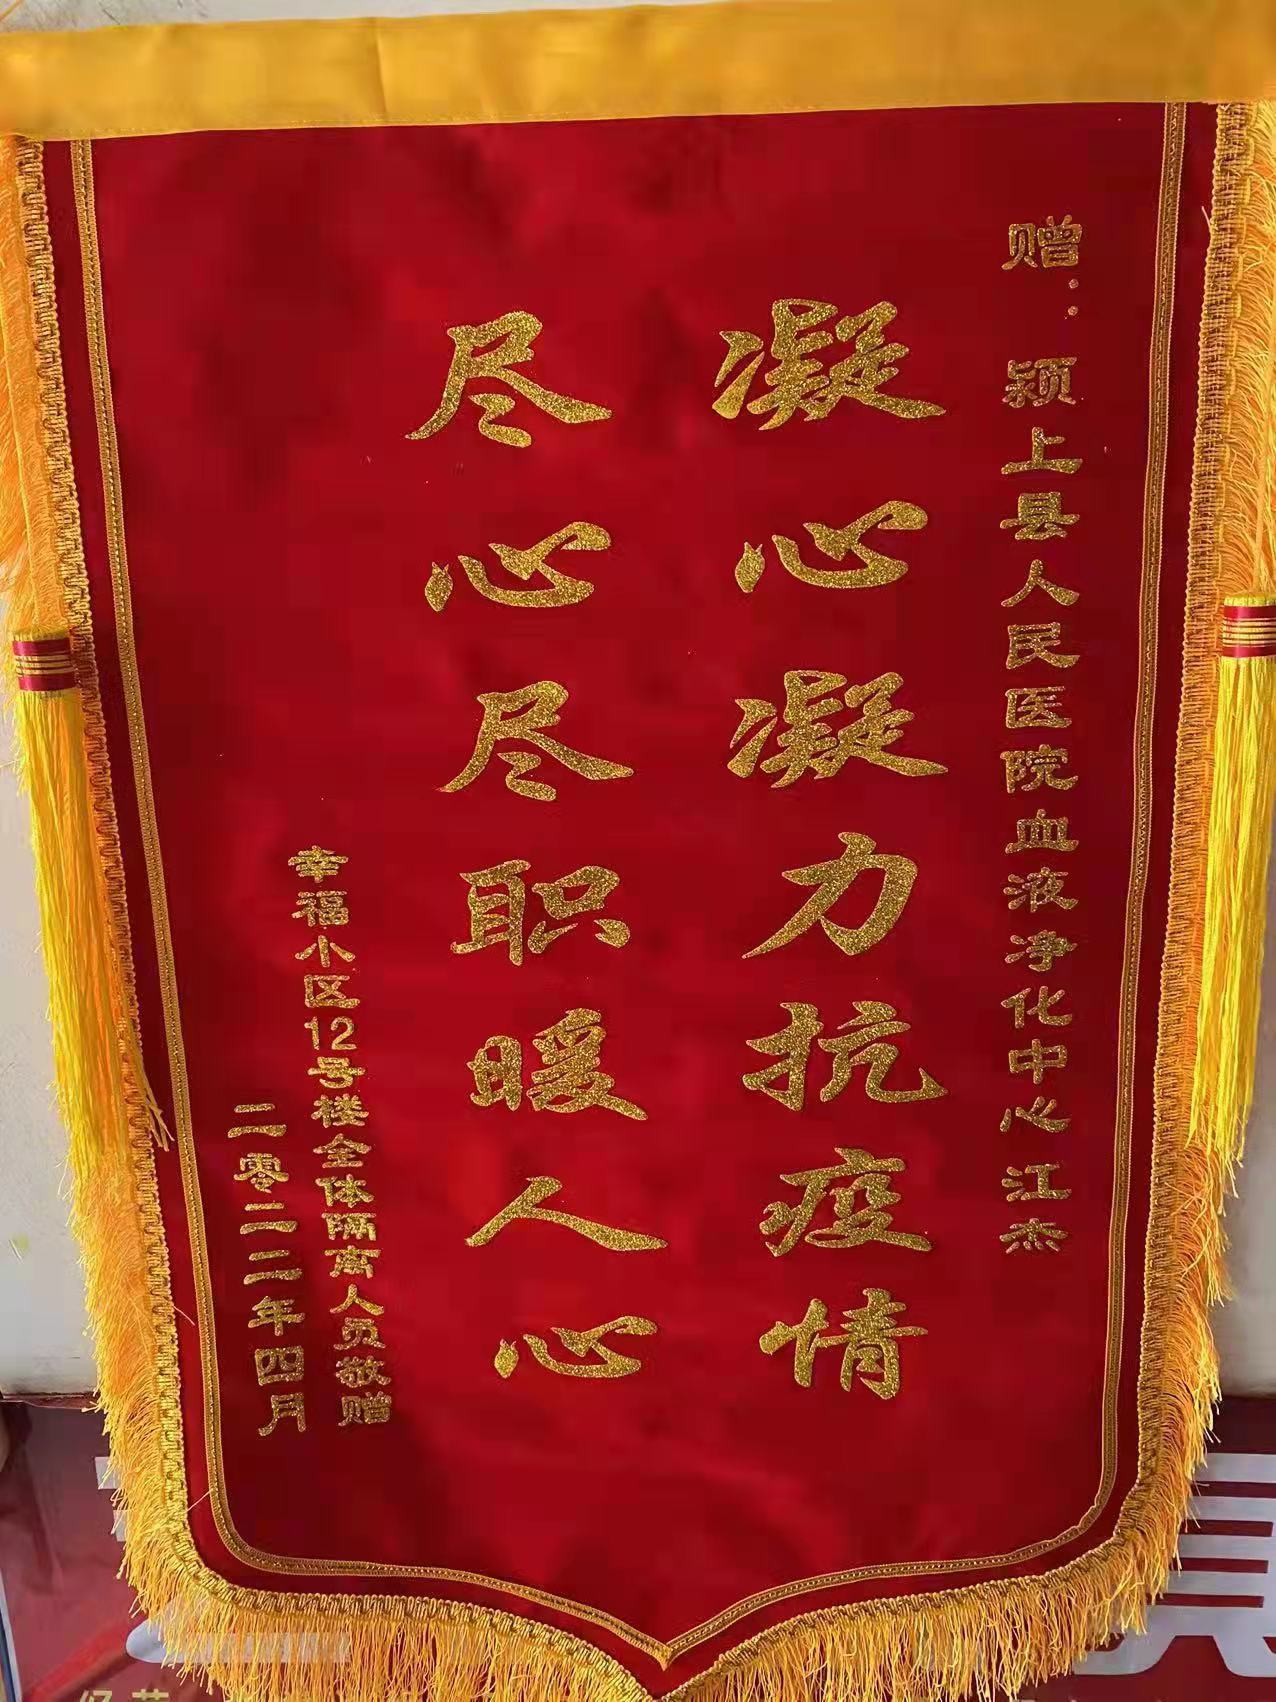 赠：颍上县人民医院血液净化中心江杰
凝心凝力抗疫情
尽心尽职暖人心
幸福小区12号楼全体隔离人员敬赠
二零二二年四月